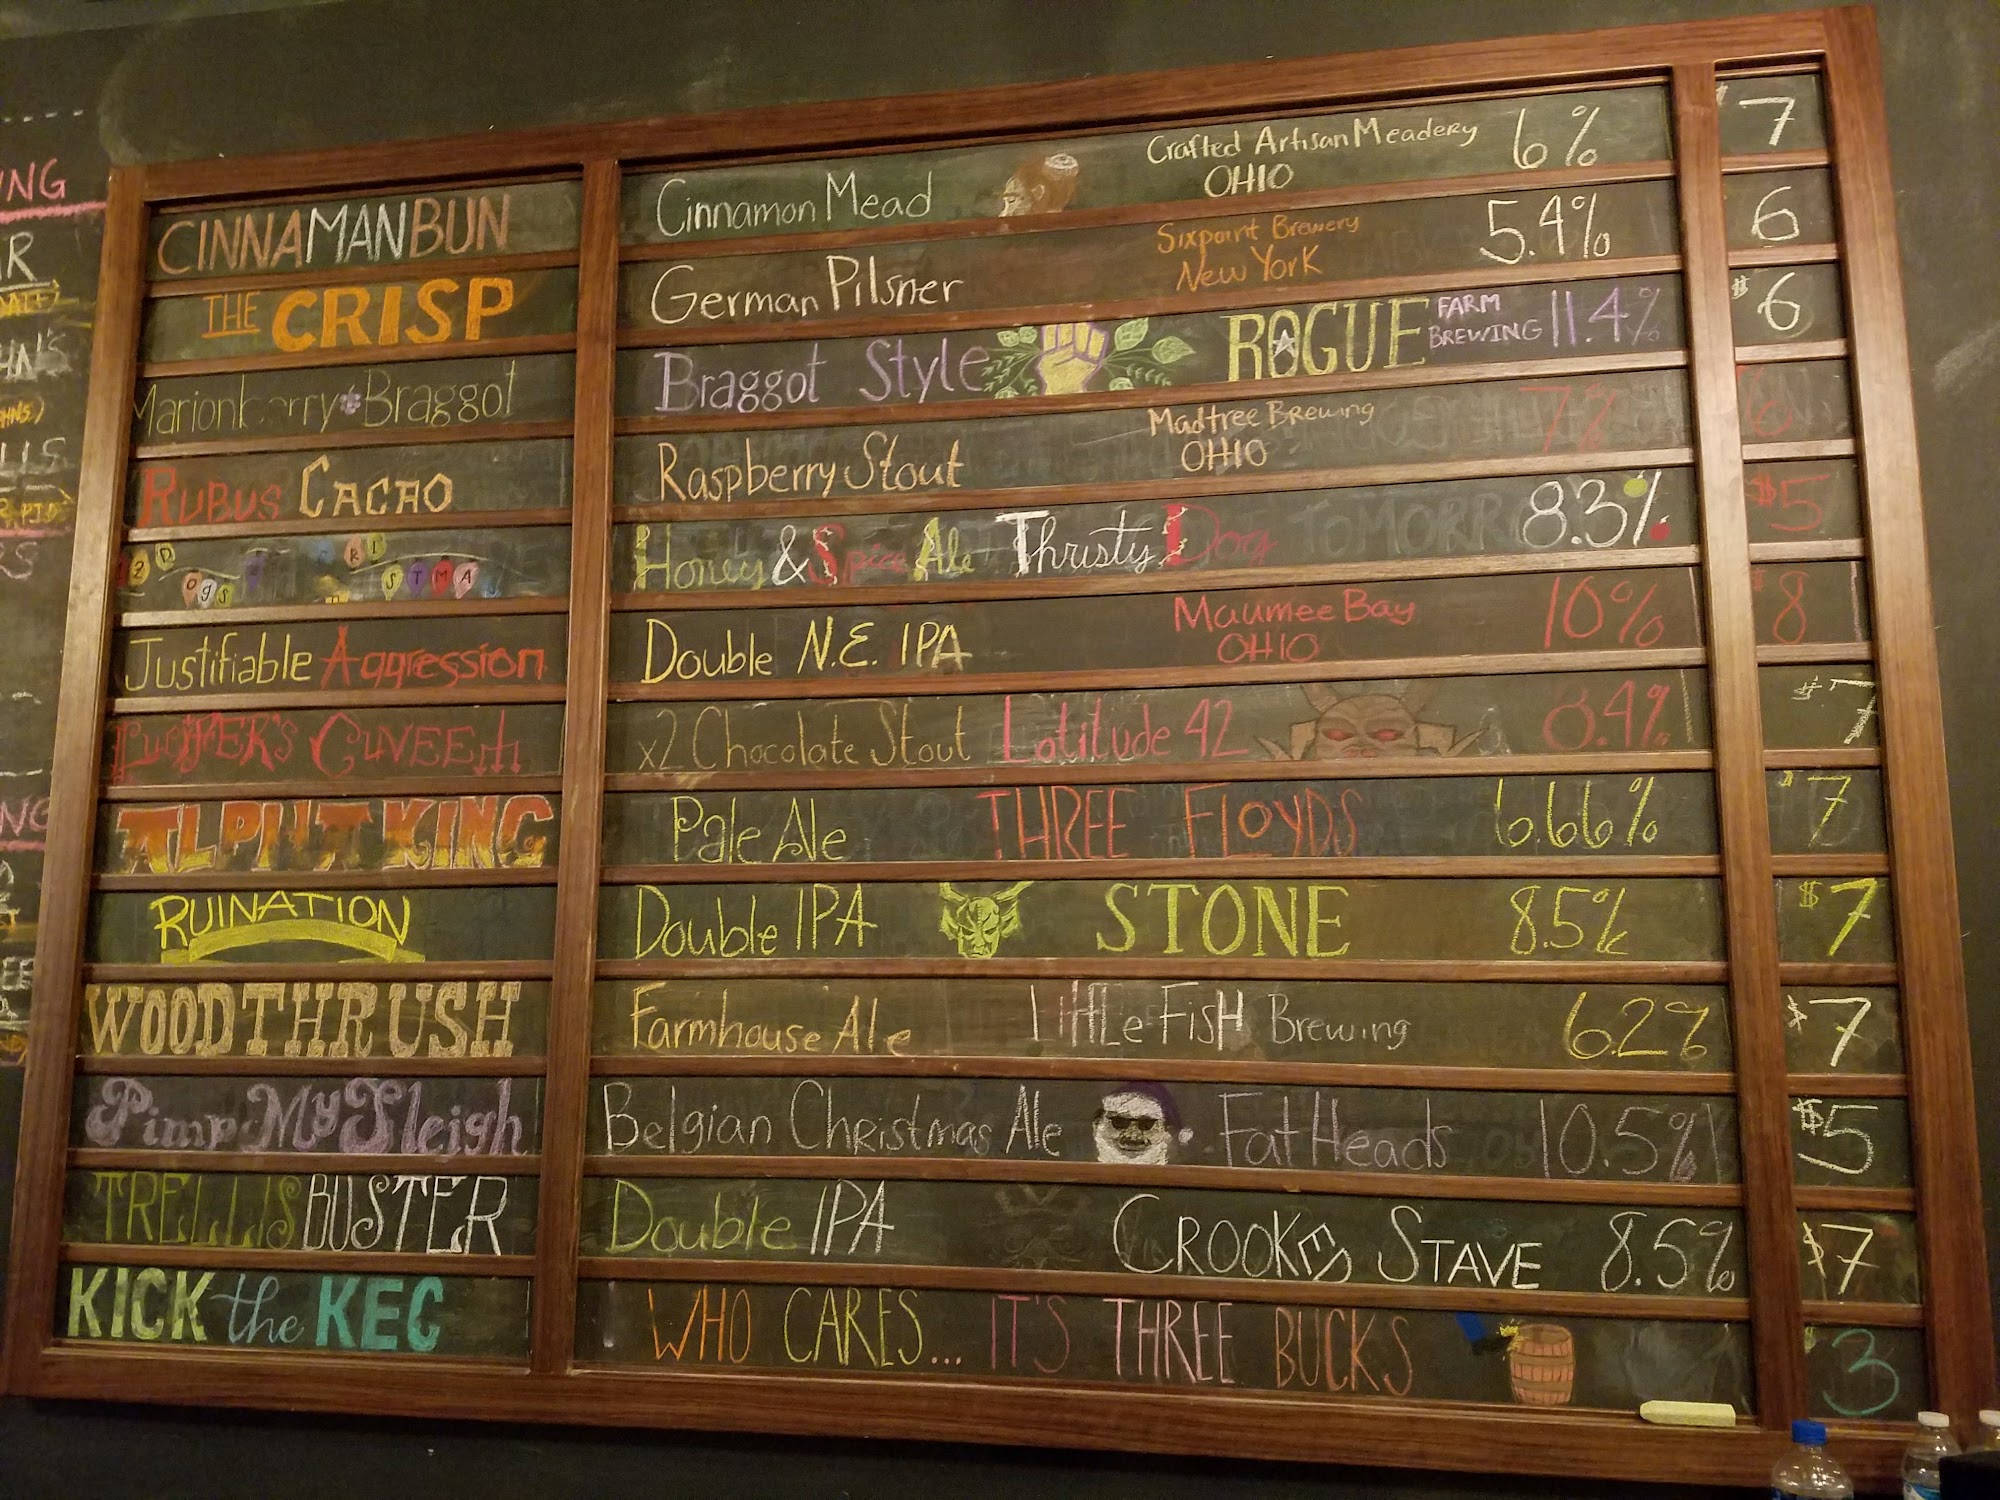 CINNAMANBUN Cinnamon Mead Crafted Artisan Meadery OHIO 6% $7
THE CRISP German Pilsner Sixpoint Brewery New York 5.4% 6
Marionberry Braggot Braggot Style ROGUE FARM BREWING 11.4% $6
RUBUS CACAO Raspberry Stout Madtree Brewing OHIO 7% 6
12 DOgS STMAS Honey & Spice Ale Thristy Dog TOMORR 8.3% $5
Justifiable Aggression Double N.E. IPA Maumee Bay OHIO 10% $8
LUCIFER'S CUVEE x2 Chocolate Stout Latitude 42 8.4% $7
ALPHA KING Pale Ale THREE FLOYDS 6.66% $7
RUINATION Double IPA STONE 8.5% $7
WOODTHRUSH Farmhouse Ale LittLe FisH Brewing 6.2% $7
Pimp My Sleigh Belgian Christmas Ale Fat Heads 10.5% $5
TRELLISBUSTER Double IPA CROOKED STAVE 8.5% $7
KICK the KEG WHO CARES... IT'S THREE BUCKS $3